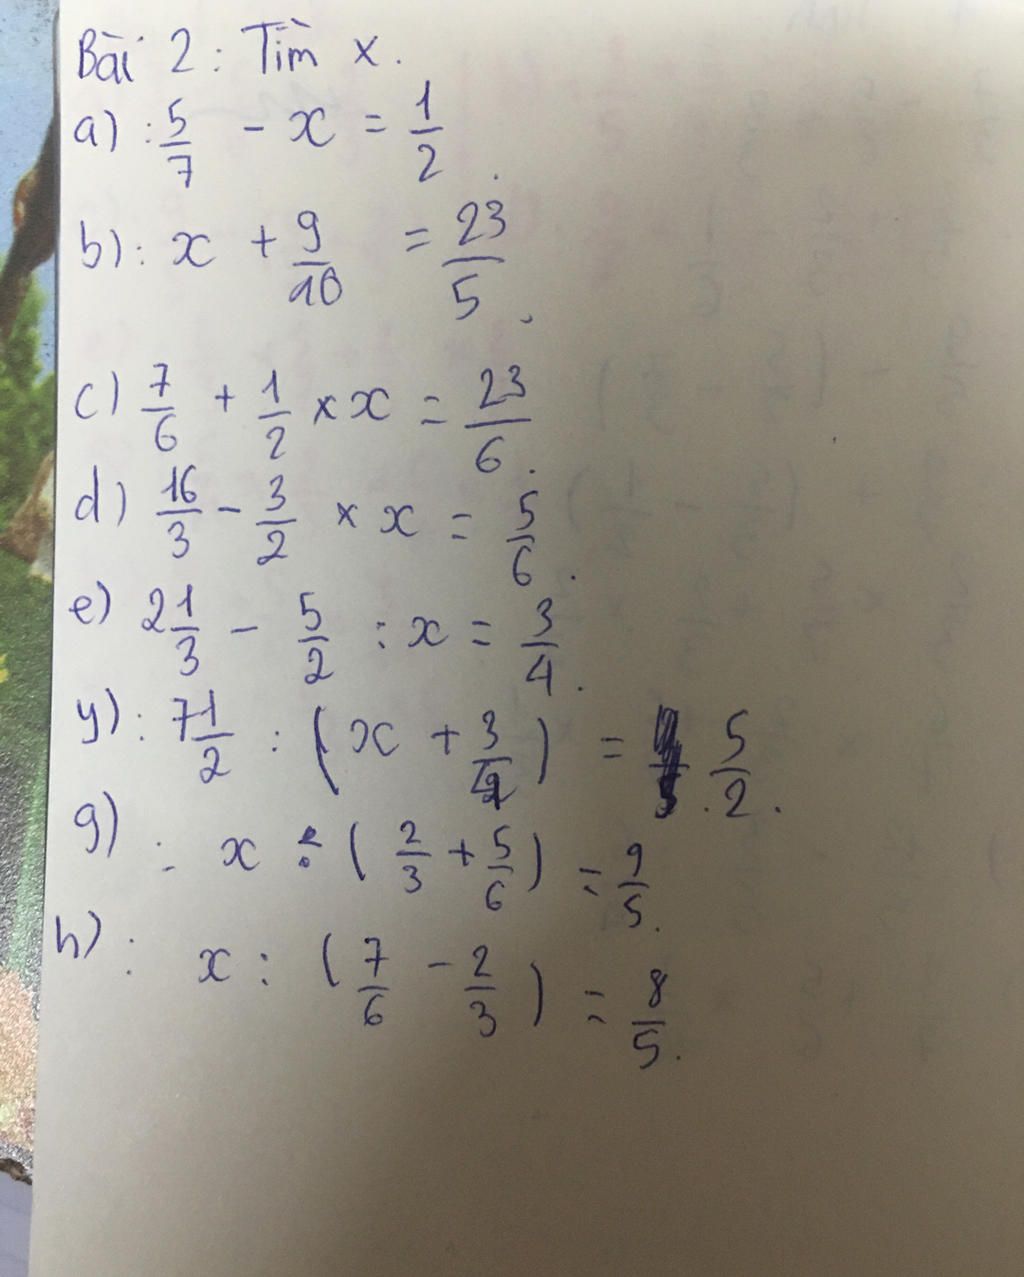 Bài 2: Tìm x.
a) : 5/7 - x = 1/2.
b) : x + 9/10 = 23/5.
c) 7/6 + 1/2 × x = 23/6.
d) 16/3 - 3/2 × x = 5/6.
e) 2 1/3 - 5/2 : x = 3/4.
y) : 7 1/2 : (x + 3/4) = 5/2.
g) : x : (2/3 + 5/6) = 9/5.
h) : x : (7/6 - 2/3) = 8/5.